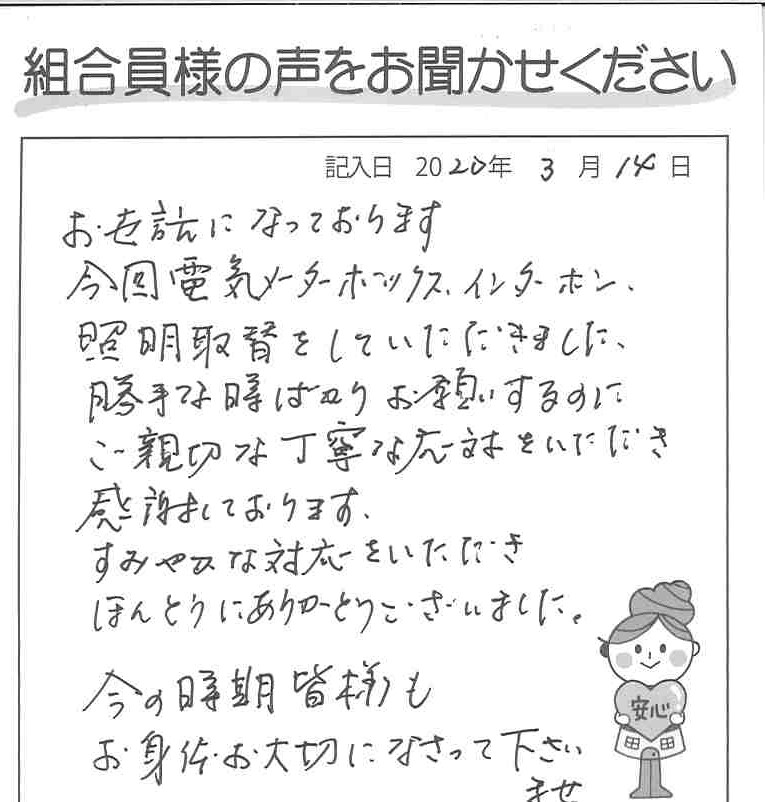 組合員様の声をお聞かせください
記入日 2020年 3月14日
お世話になっております
今回電気メーターボックス、インターホン、
照明取替をしていただきました、
勝手な時ばかりお願いするのに
ご親切な丁寧な応対をいただき
感謝しております、
すみやかな対応をいただき
ほんとうにありがとうございました。
今の時期皆様も
お身体お大切になさって下さい
ませ
安心